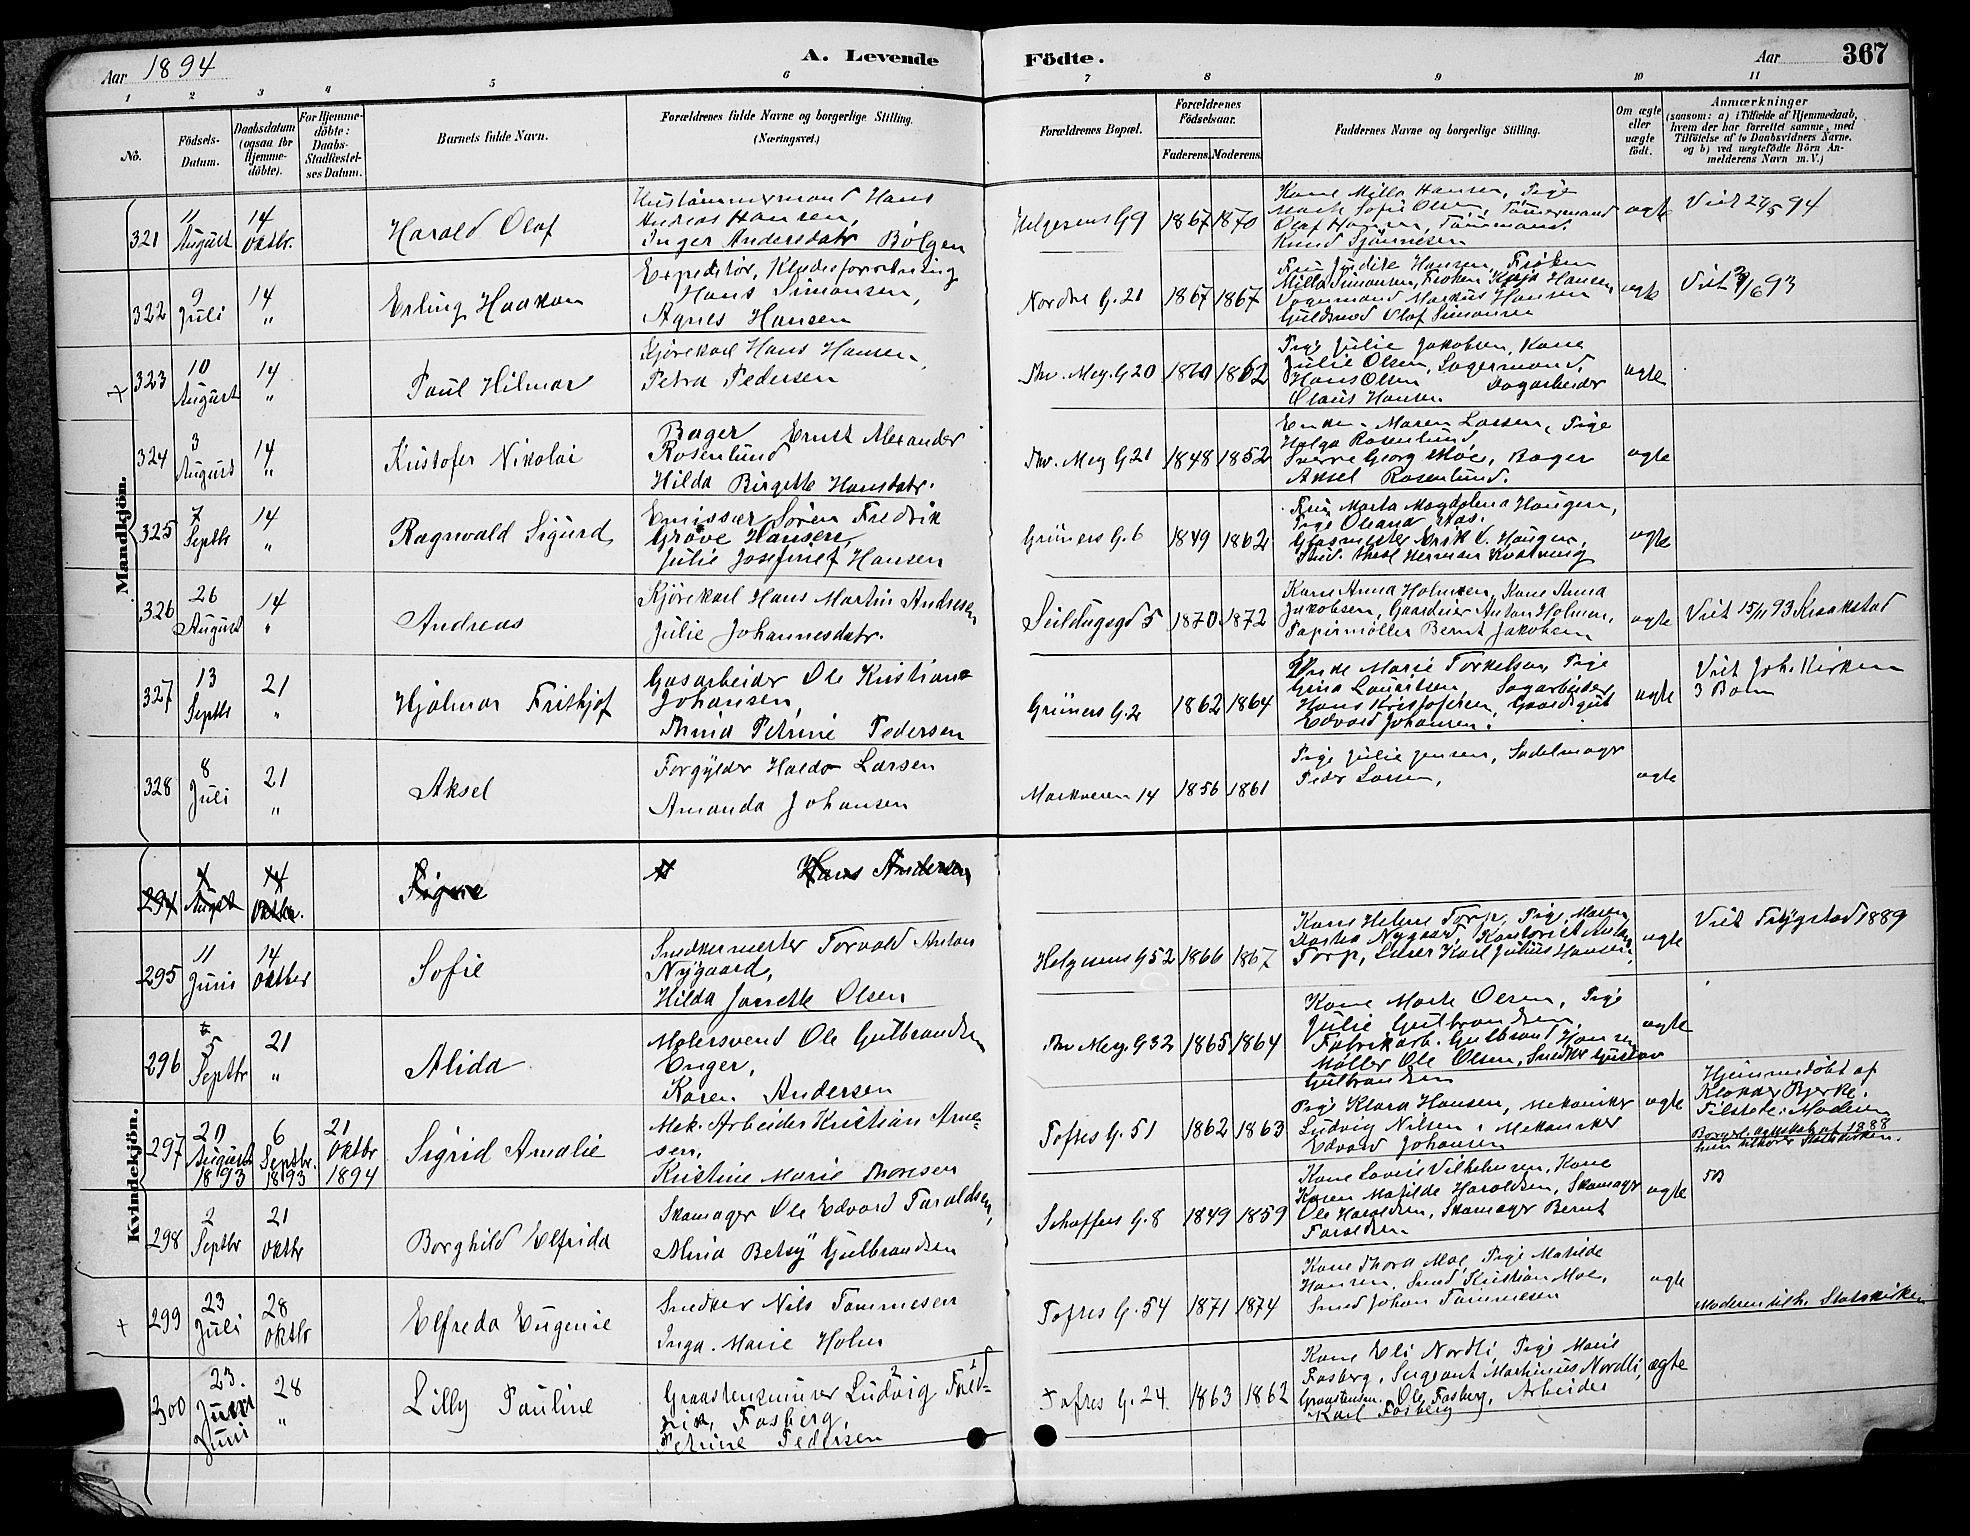 Aar 1894
A. Levende
Födte.
Aar
367
1 2 3 4 5 6 7 8 9 10 11
No.
Födsels-Datum.
Daabsdatum (ogsaa för Hjemme-döbte).
For Hjemme-döbte: Daabs-Stadfæstel-ses Datum.
Barnets fulde Navn.
Forældrenes fulde Navne og borgerlige Stilling.
(Næringsvei.)
Forældrenes Bopæl.
Forældrenes Födselsaar.
Faderens. Moderens.
Faddernes Navne og borgerlige Stilling.
Om ægte eller uægte födt.
Anmærkninger
(saasom: a) i Tilfælde af Hjemmedaab,
hvem der har forrettet samme, med
Tilföielse af to Daabsvidners Navne.
og b) ved uægtefödte Börn An-
melderens Navn m. V.)
Mandkjön.
321
11 August
14 Oktbr.
Harald Olaf
Hustømmermand Hans
Andreas Hansen,
Inger Andersdatr Bølgen
Helgesens G 9
1867 1870
Kone Milla Hansen, Pige
Marte Sofie Olsen, Tømmermand
Olaf Hansen, Tømmand.
Knud
ægte
Viet 27/5 94
322
9 Juli
14 "
Erling Haakon
Expeditør, Klædesforretning
Hans Simonsen,
Agnes Hansen
Nordre G. 21
1867 1867
Fru Judite Hansen, Frøken
Milla Simonsen, Frøken Kaja Hansen
Vognmand Markus Hansen
Guldsmed Olaf Simonsen
ægte
Viet /6 93
323
10 August
14 "
Paul Hilmar
Kjørekarl Hans Hansen,
Petra Pedersen
Thv. Mey. G 20
1860 1862
Pige Julie Jakobsen, Kone
Julie Olsen, Lagermand,
Hans Olsen Dagarbeider
Olaus Hansen
ægte
324
3 August
14 "
Kristofer Nikolai
Bager Ernst Alexander
Rosenlund
Hilda Birgitte Hansdatr.
Thv. Mey G 21
1848 1852
Enke Maren Larsen, Pige
Helga Rosenlund
Sverre Georg Moe, Bager
Aksel Rosenlund.
ægte
325
7 Septbr
14 "
Ragnvald Sigurd
Emissær Søren Fredrik
Grøve Hansen,
Julie Josefine Hansen
Grüners G. 6
1849 1862
Fru Marta Magdalena Haugen,
Pige Oleana Aas.
Glasmester Erik C. Haugen,
Stud. theol Herman Kvalsvig
ægte
326
26 August
14 "
Andreas
Kjørekarl Hans Martin Andresen
Julie Johannesdatr.
Seildugsgd 5
1870 1872
Kone Anna Holmsen, Kone Anna
Jakobsen, Gaardeier Anton Holmsen,
Papirmøller Bernt Jakobsen
ægte
Viet 15/11 93 Kraakstad
327
13 Septbr
21 "
Hjalmar Frithjof
Gasarbeider Ole Kristian
Johansen,
Thrina Petrine Pedersen
Grüners G. 2
1862 1864
Enke Marie Torkelsen, Pige
Gina Lauritsen, Sagarbeider
Hans Kristofersen, Gaardsgut
Edvard Johansen.
ægte
Viet Joh. Kirken
3 Barn
328
8 Juli
21 "
Aksel
Forgylder Haldor Larsen
Amanda Johansen
Markveien 14
1856 1861
Pige Julie Jensen, Sadelmager
Peder Larsen,
ægte
Kvindekjön.
294
August
14 Oktbr.
Signe
Hans Andersen
295
11 Juni
14 Oktber
Sofie
Snedkermester Torvald Anton
Nygaard,
Hilda Janette Olsen
Helgesens G 52
1866 1867
Kone Helene Torp, Pige Marten
Dorthea Nygaard, Kontorist Anton
Torp, Lærer Karl Julius Hansen,
ægte
Viet Trygstad 1889
296
5 Septbr
21 "
Alida
Malersvend Ole Gulbrandsen
Enger,
Karen Andersen
Thv Mey. G 32
1865 1864
Kone Marte Olsen, Pige
Julie Gulbrandsen
Fabrikarb. Gulbrand Hansen
Møller Ole Olsen, Snedker Gustav
Gulbrandsen
ægte
297
20 August 1893
6 Septbr. 1893
21 Oktbr 1894
Sigrid Amalie
Mek. Arbeider Kristian Arne-
sen,
Kristine Marie Thoresen
Toftes G. 51
1862 1863
Pige Klara Hansen, Mekaniker
Ludvig Nilsen, Mekaniker
Edvard Johansen
ægte
Hjemmedøbt af
Klokker Bjerke.
Tilstede: Moderen
Borgerl. ægteskab af 1888
hun tilhører Statskirken.
298
2 Septbr
21 Oktbr
Borghild Elfrida
Skomager Ole Edvard Taraldsen,
Alma Betsy Gulbrandsen
Schaffers G. 8
1849 1859
Kone Lovise Vilhelmsen, Kone
Karen Matilde Haraldsen, Skomager
Ole Haraldsen, Skomager Bernt
Taraldsen
ægte
5B
299
23 Juli
28 Oktbr
Elfreda Eugenie
Snedker Nils Tommesen
Inga Marie Holm
Toftes G. 54
1871 1874
Kone Thora Moe, Pige Matilde
Hansen, Smed Kristian Moe,
Smed Johan Tommesen
ægte
Moderen tilh. Statskirken
300
23. Juni
Juni
28 "
Lilly Pauline
Graastensmurer Ludvig Fred-
rik, Fosberg,
Petrine Pedersen
Toftes G. 24
1863 1862
Kone Eli Nordli Pige Marie
Fosberg, Sergeant Martinius Nordli,
Graastensm. Ole Fosberg, Arbeider
Karl Fosberg
ægte